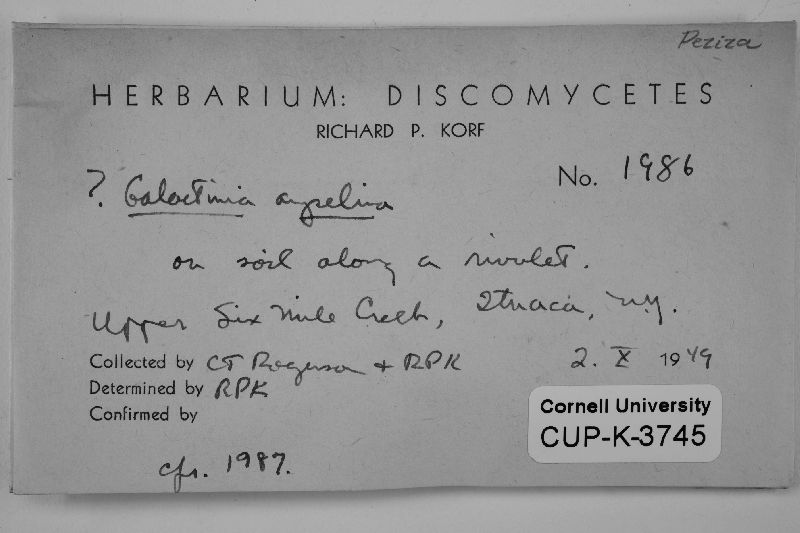 Peziza
HERBARIUM: DISCOMYCETES
RICHARD P. KORF
No. 1986
?. Galactinia ampelina
on soil along a rivulet.
Upper Six Mile Creek, Ithaca, N.Y.
Collected by CT Rogerson + RPK 2. X 1949
Determined by RPK
Confirmed by
Cornell University
CUP-K-3745
cfr. 1987.